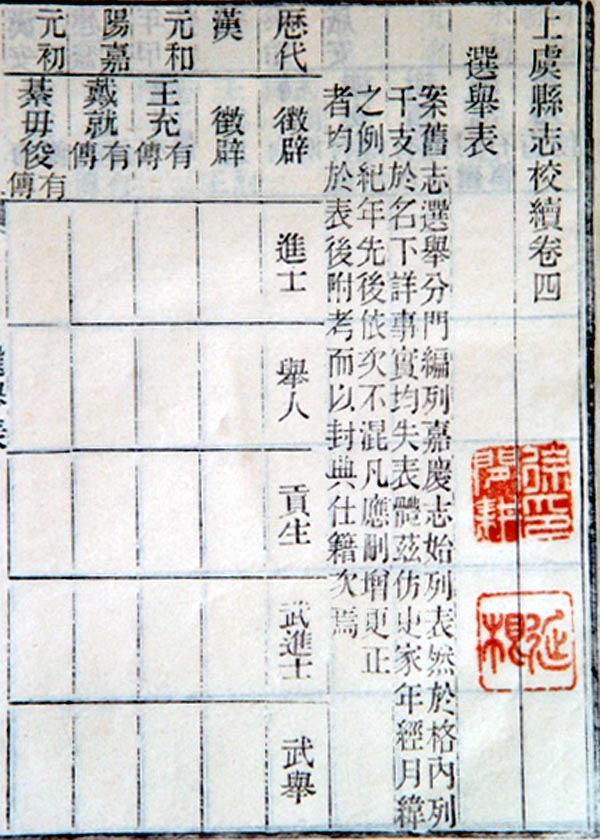 上虞縣志校續卷四
選舉表
案舊志選舉分門編列嘉慶志始列表然於格內列
干支於名下詳事實均失表體茲仿史家年經月緯
之例紀年先後依次不混凡應刪增更正
者均於表後附考而以封典仕籍次焉
歷代 徵辟 進士 舉人 貢生 武進士 武舉
漢 徵辟
元和 王充有傳
陽嘉 戴就有傳
元初 綦毋俊有傳